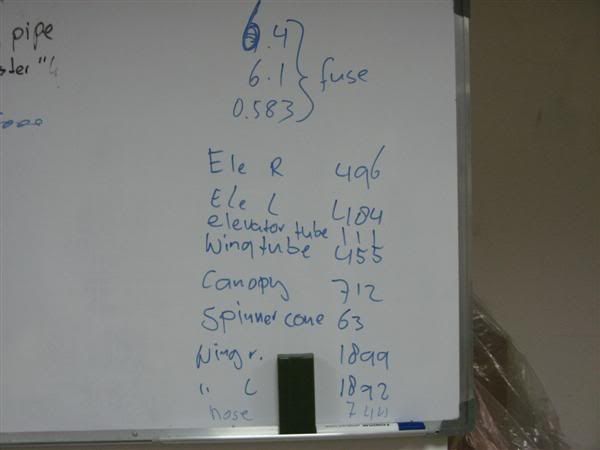 pipe
6.4
6.1 fuse
0.583
Ele R 496
Ele L 484
elevator tube 111
Wingtube 455
Canopy 712
Spinner cone 63
Wing r. 1899
" L 1892
nose 744